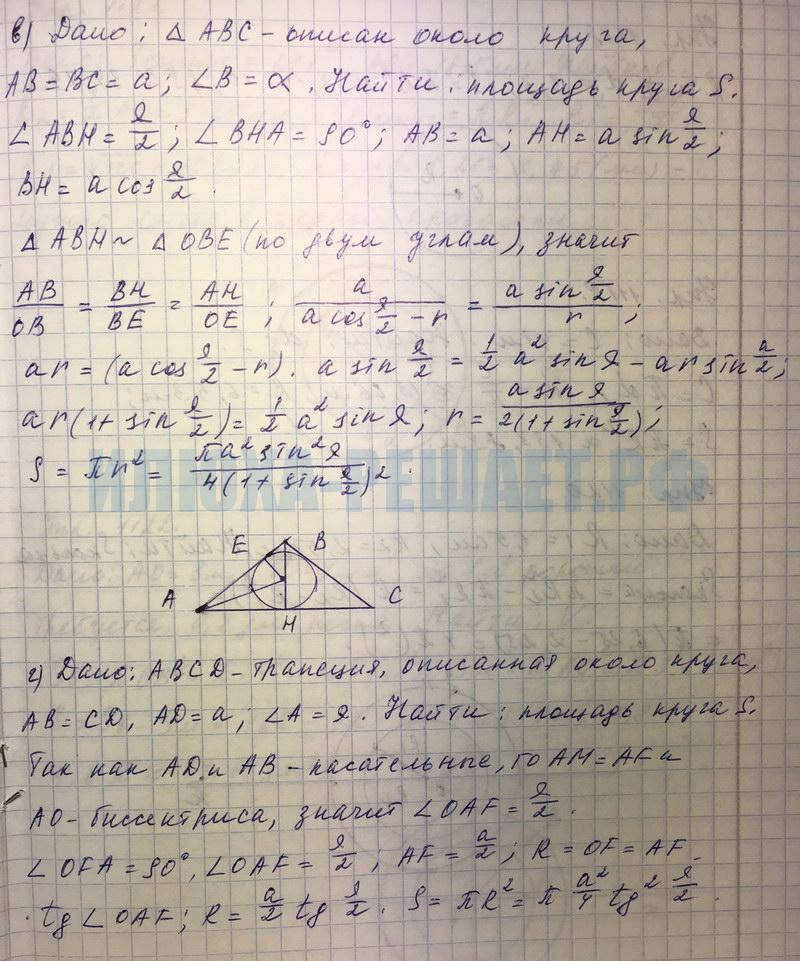 в) Дано: △ ABC - описан около круга,
AB = BC = a; ∠B = α. Найти: площадь круга S.
∠ ABH = α/2; ∠ BHA = 90°; AB = a; AH = a sin α/2;
BH = a cos α/2.
△ ABH ~ △ OBE (по двум углам), значит
AB/OB = BH/BE = AH/OE; a/(a cos α/2 - r) = (a sin α/2)/r;
ar = (a cos α/2 - r) · a sin α/2 = 1/2 a² sin α - ar sin a/2;
ar(1 + sin α/2) = 1/2 a² sin α; r = a sin α/2(1 + sin α/2);
S = πr² = πa² sin² α/4(1 + sin α/2)².
ИЛЮХА-РЕШАЕТ.РФ
E B
A C
H
г) Дано: ABCD - трапеция, описанная около круга,
AB = CD, AD = a; ∠A = α. Найти: площадь круга S.
Так как AD и AB - касательные, то AM = AF и
AO - биссектриса, значит ∠OAF = α/2.
∠OFA = 90°, ∠OAF = α/2; AF = a/2; R = OF = AF
· tg ∠OAF; R = a/2 tg α/2. S = πR² = π a²/4 tg² α/2.